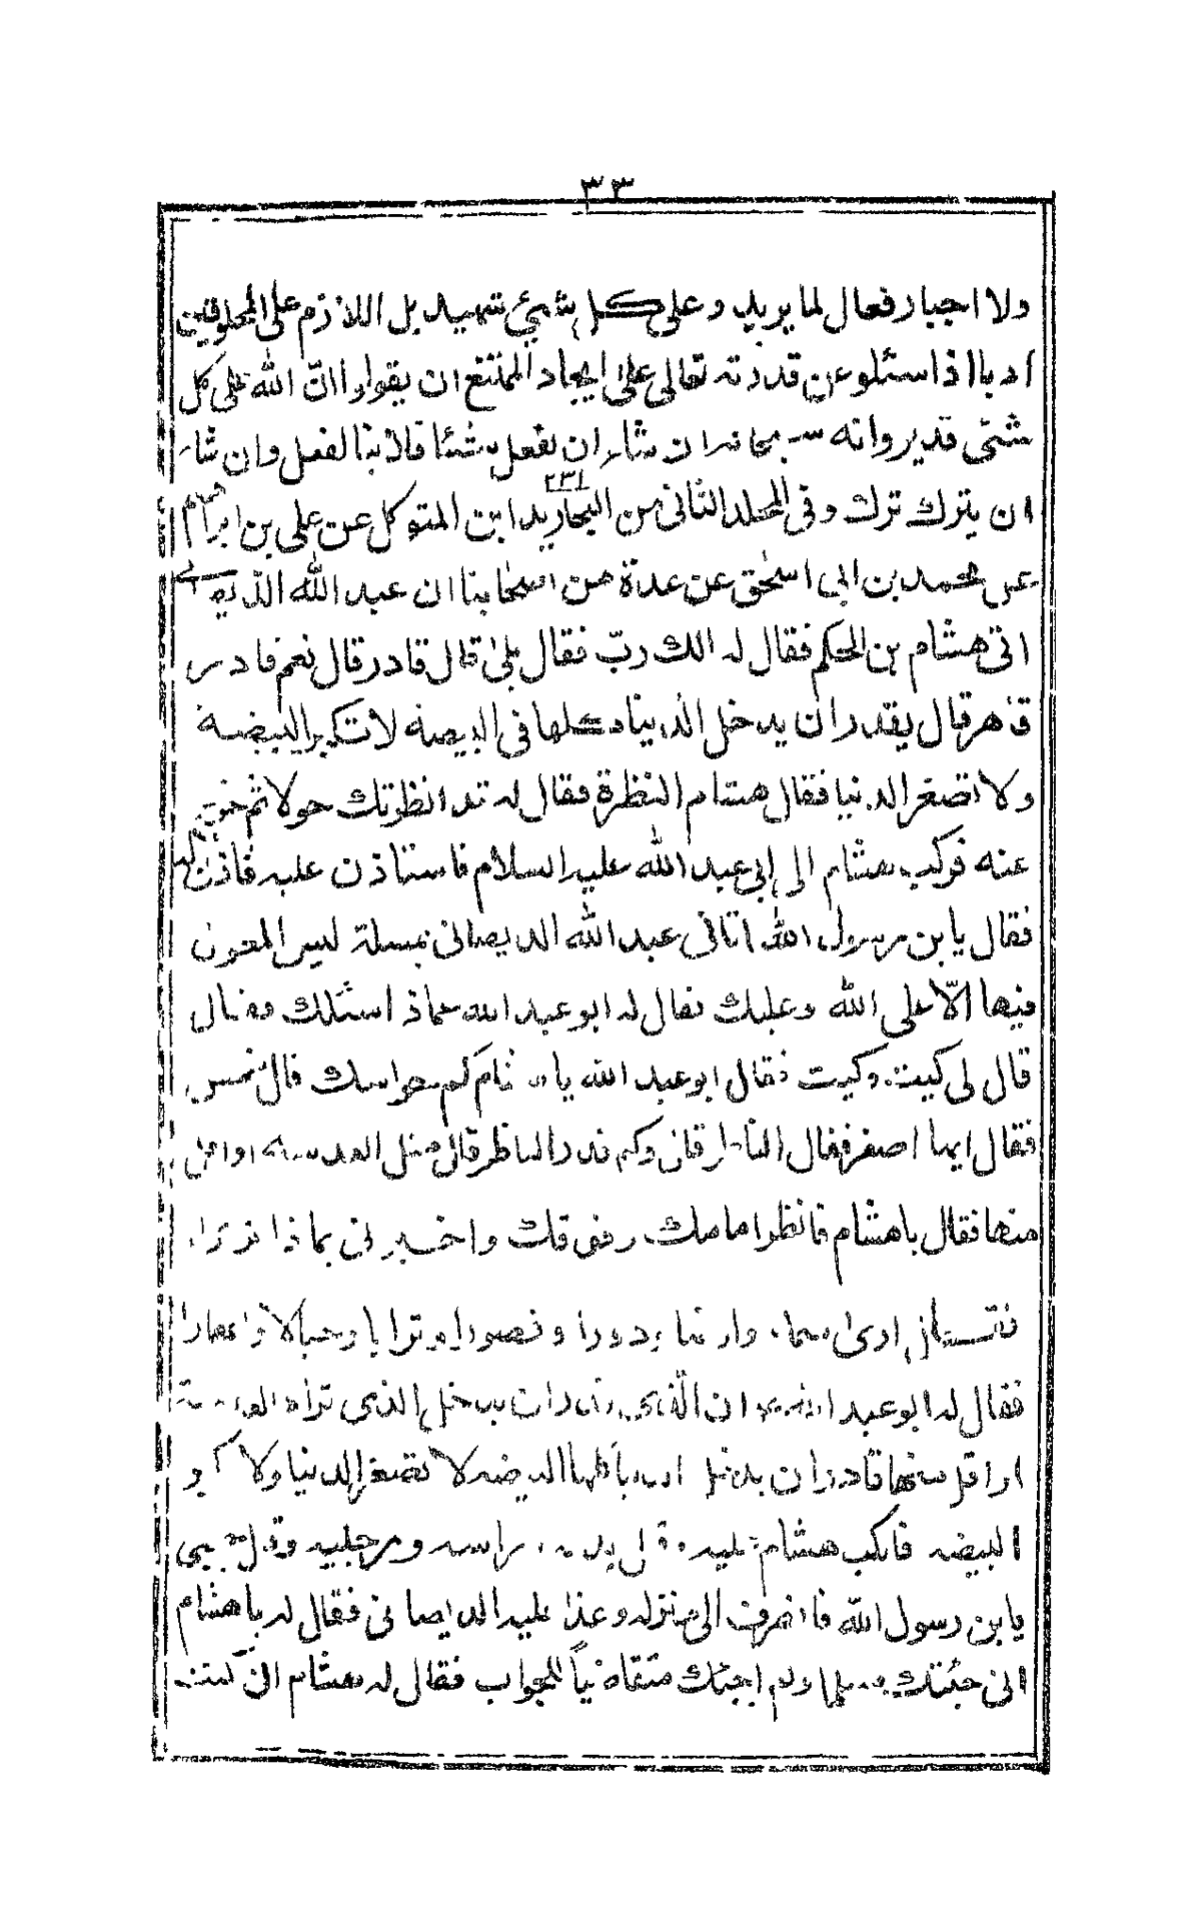 ٣٣
ولا اجبار فعال لما يريد وعلى كل شيئ شهيد بل اللازم على المخلوقين
ادبا اذا سئلو عن قدرته تعالى على ايجاد الممتنع ان يقولوا انّ الله على كل
شئ قدير وانه سبحانه ان شاء ان يفعل شئا فاذنه الفعل وان شاء
ان يترك ترك وفى المجلد الثانى من البحار ٢٣١ يد ابن المتوكل عن على بن ابراهيم
عن محمد بن ابى اسحٰق عن عدة من اصحابنا ان عبد الله الديصانى
اتى هشام بن الحكم فقال له الك ربّ فقال بلىٰ قال قادر قال نعم قادر
قاهر قال يقدر ان يدخل الدنيا كلها فى البيضة لا تكبر البيضة
ولا تصغر الدنيا فقال هشام النظرة فقال له قد انظرتك حولا ثم خرج
عنه فركب هشام الى ابى عبد الله عليه السلام فاستاذن عليه فاذن له
فقال يابن رسول الله اتانى عبد الله الديصانى بمسئلة ليس المعون
فيها الّا على الله وعليك فقال له ابو عبد الله عماذا سئلك فقال
قال لى كيت وكيت فقال ابو عبد الله يا هشام كم حواسك قال خمس
فقال ايها اصغر فقال الناظر قال وكم قدر الناظر قال مثل العدسة او اقل
منها فقال يا هشام فانظر امامك وفوقك واخبرنى بماذا ترى
فقال ارى سماء وارضا ودورا وقصورا وترابا وجبالا وانهارا
فقال له ابو عبد الله ان الّذى قدر ان يدخل الذى تراه العدسة
او اقل منها قادر ان يدخل الدنيا كلها البيضه لا تصغر الدنيا ولا تكبر
البيضه فانكب هشام عليه وقبل يديه وراسه ورجليه وقال حسبى
يابن رسول الله فانصرف الى منزله وغدا عليه الديصانى فقال له يا هشام
انى جئتك مسلما ولم اجئك متقاضيًا للجواب فقال له هشام ان كنت